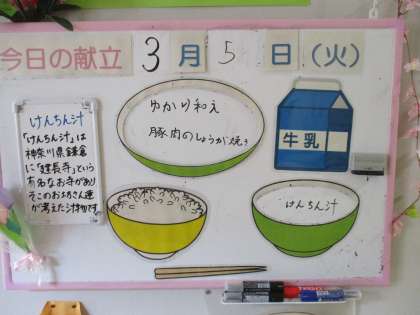 今日の献立 3月5日(火)
ゆかり和え
豚肉のしょうが焼き
牛乳
けんちん汁
「けんちん汁」は
神奈川県鎌倉
に「建長寺」という
有名なお寺があり
そこのお坊さん達
が考えた汁物です。
けんちん汁